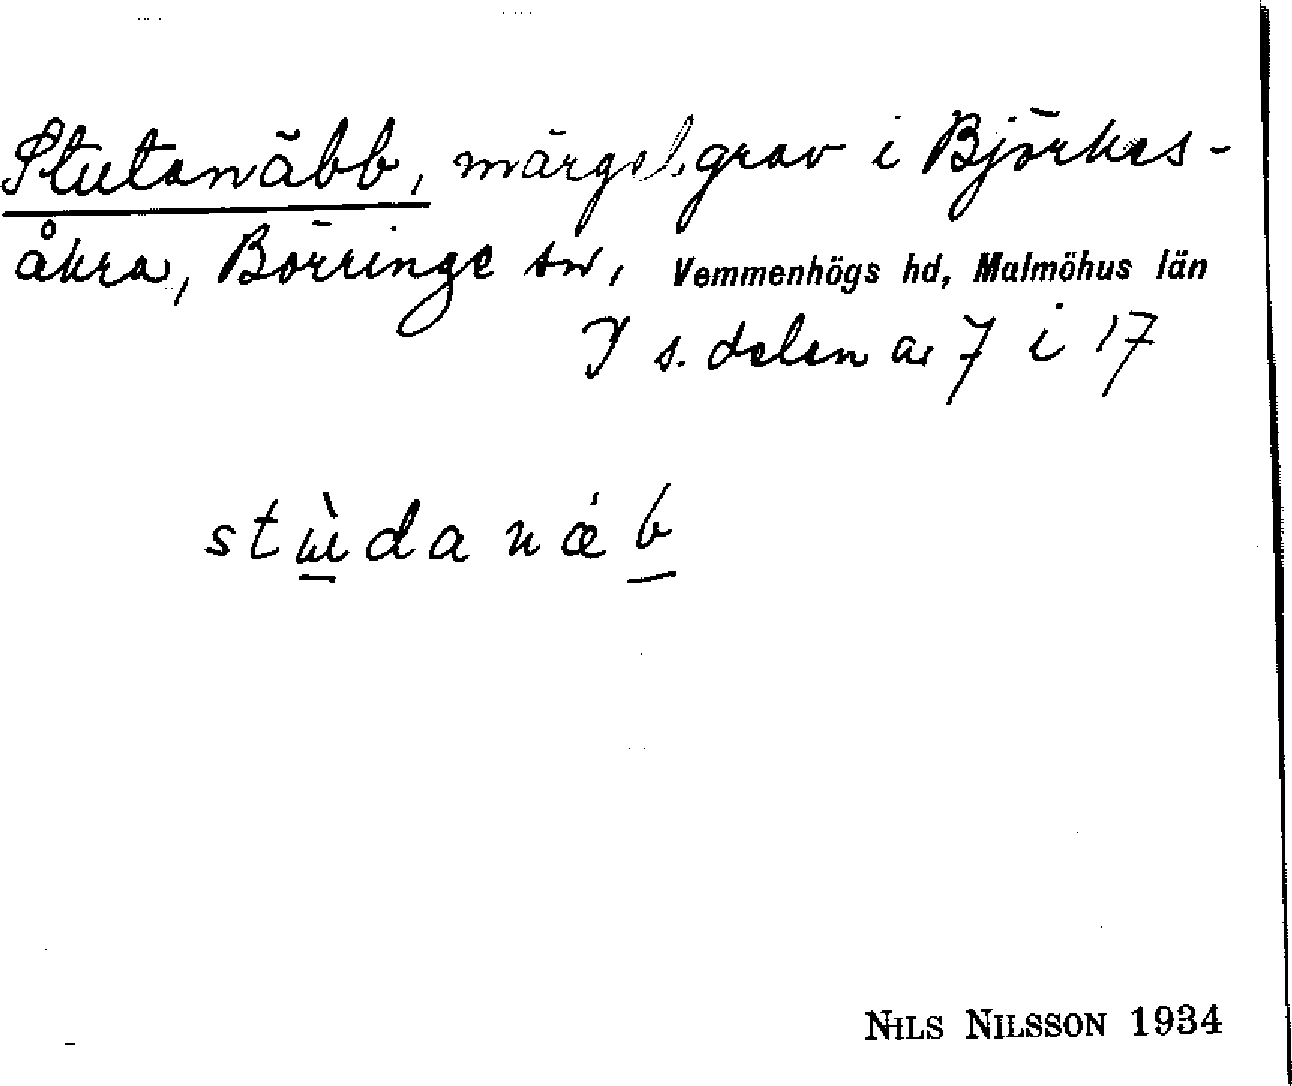 Stutanäbb, märgelgrav i Björkes-
åkra, Börringe sn, Vemmenhögs hd, Malmöhus län
I s. delen av 7 i 17
stɯ̀danǽb
NILS NILSSON 1934